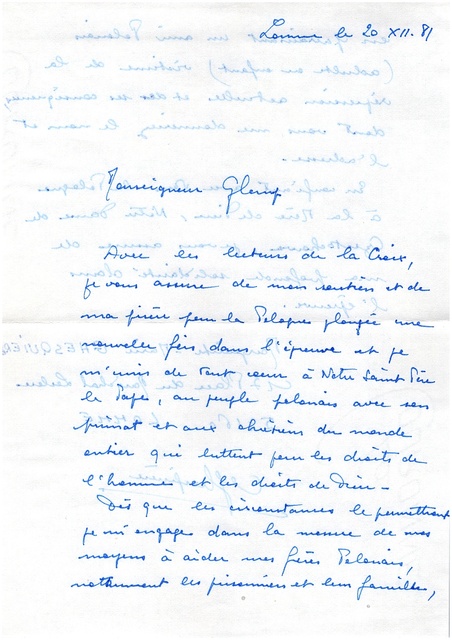 Lomme le 20 XII. 81
Monseigneur Glemp
Avec les lecteurs de la Croix,
je vous assure de mon soutien et de
ma prière pour la Pologne plongée une
nouvelle fois dans l'épreuve et je
m'unis de tout cœur à Notre Saint Père
le Pape, au peuple polonais avec son
primat et aux chrétiens du monde
entier qui luttent pour les droits de
l'homme et les droits de Dieu -
Dès que les circonstances le permettront
je m'engage dans la mesure de mes
moyens à aider mes frères Polonais,
notamment les prisonniers et leurs familles,